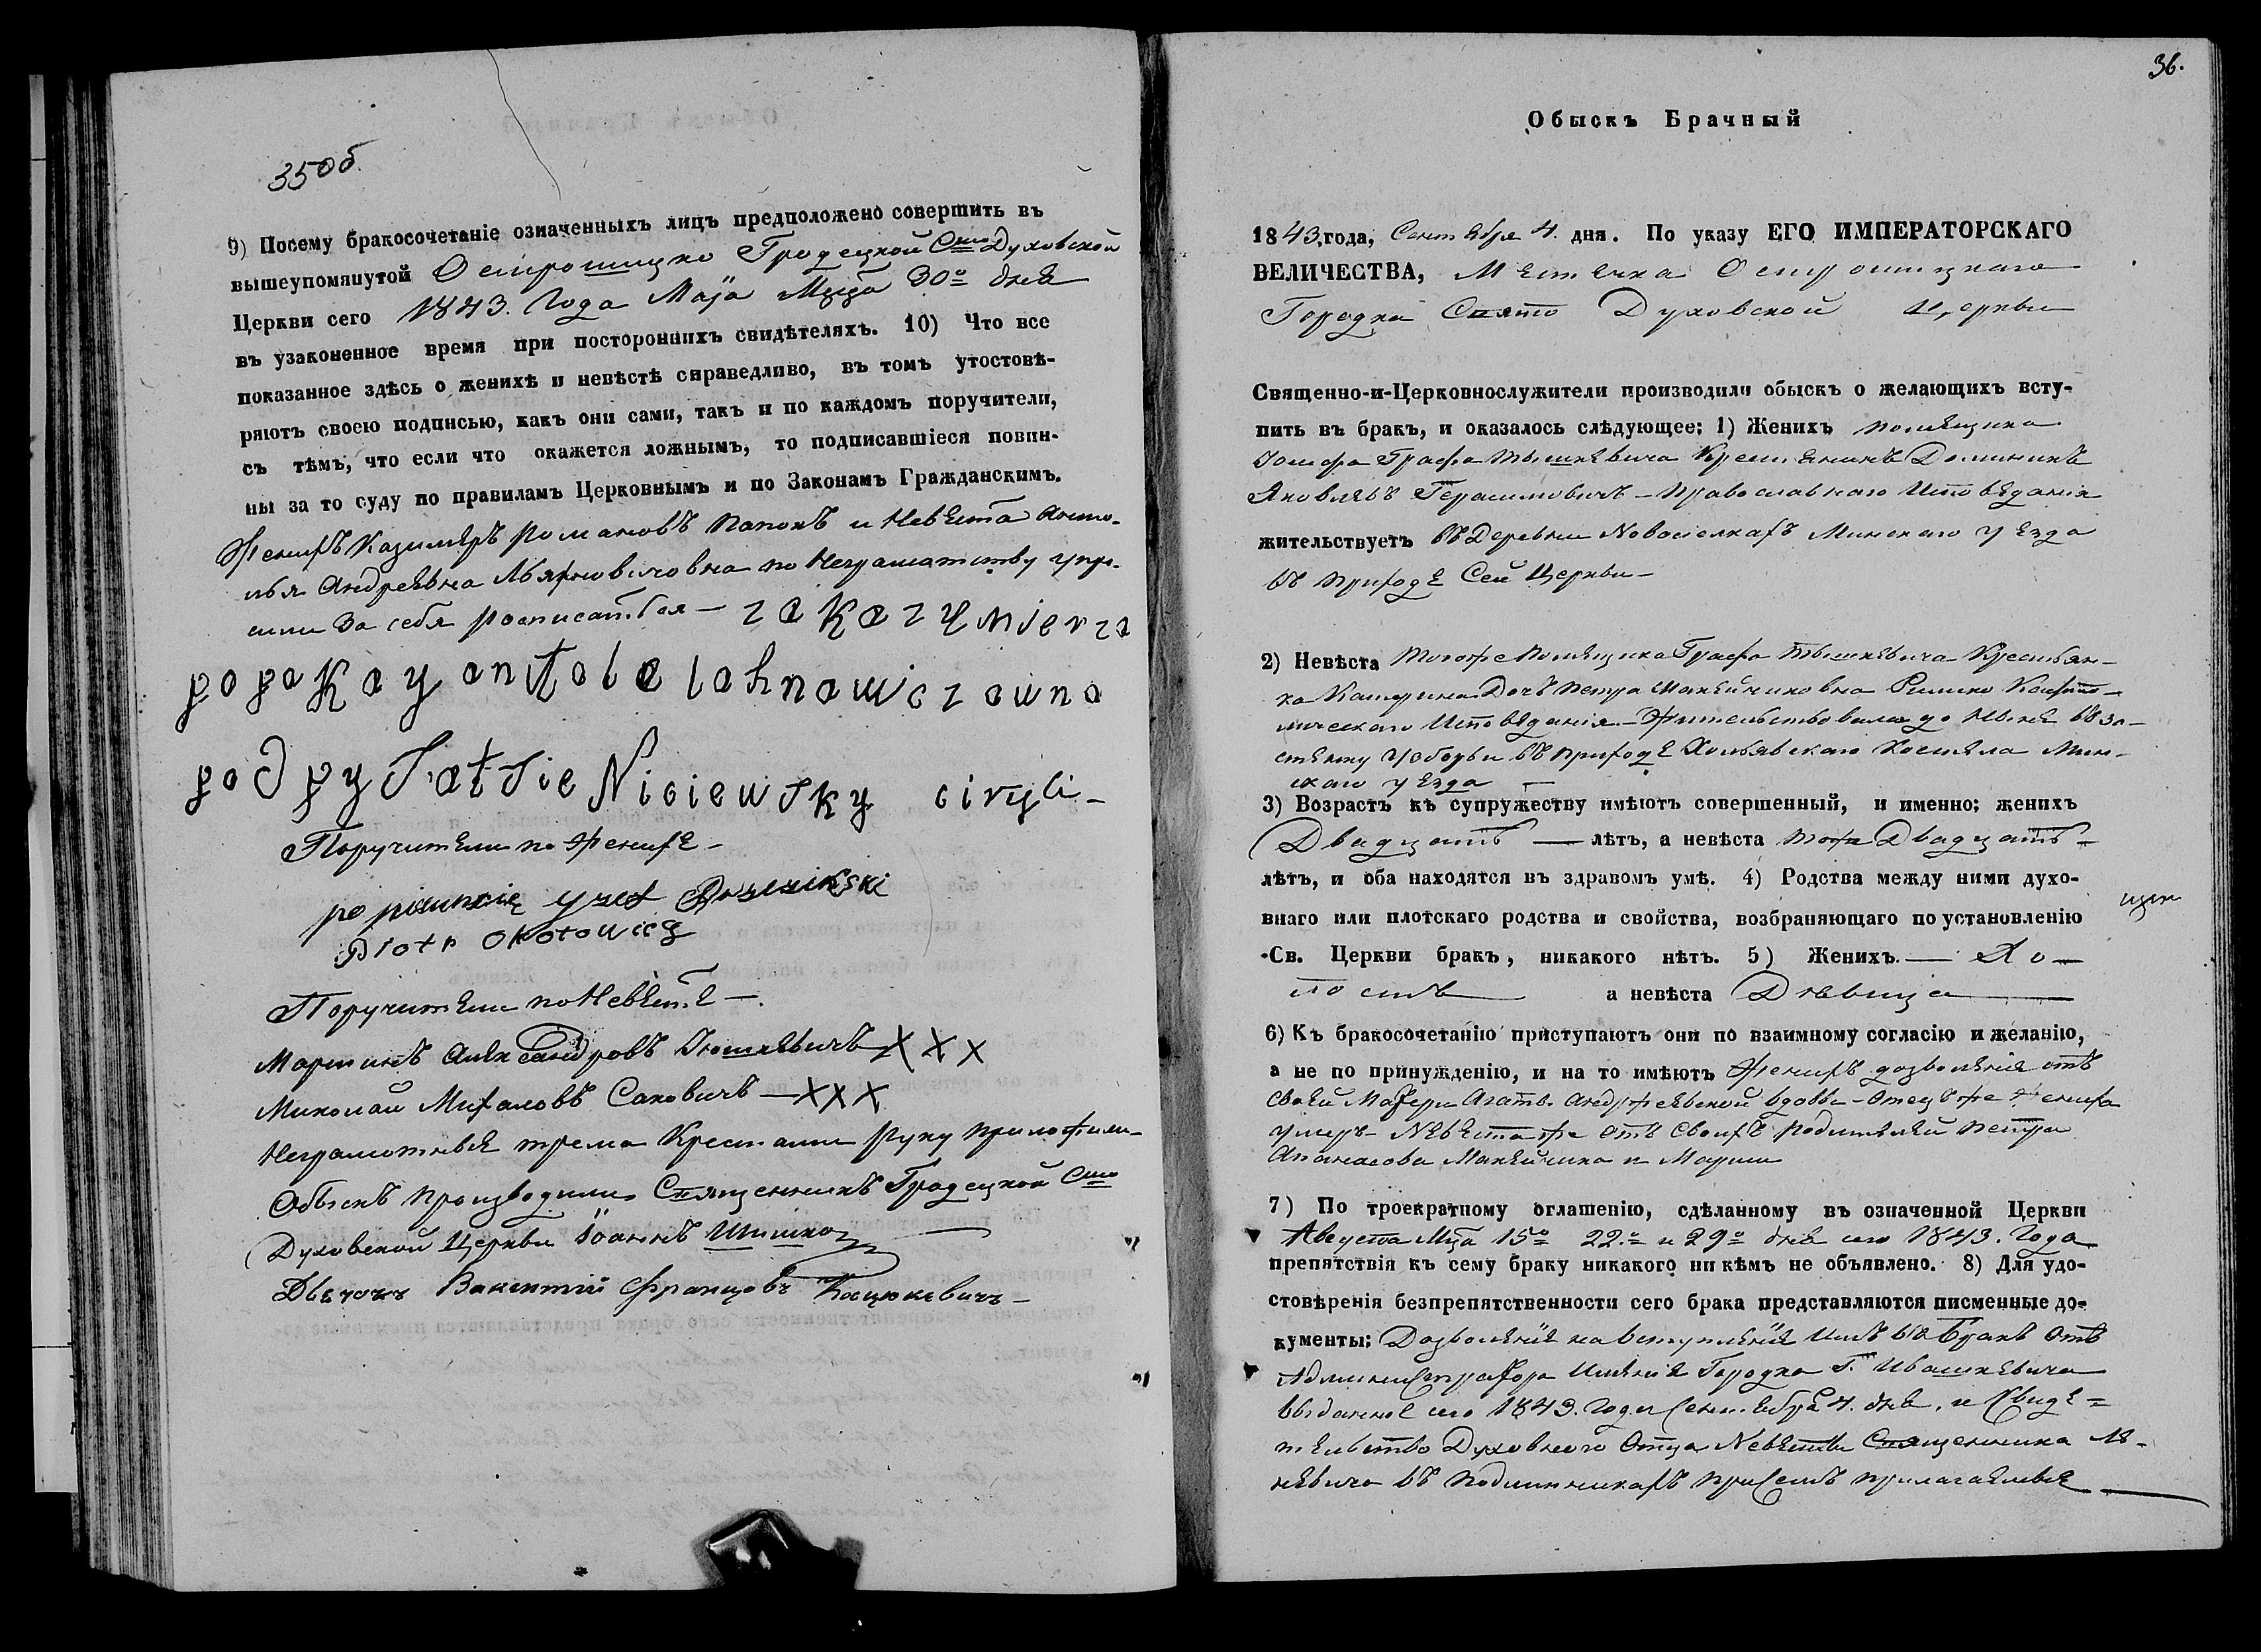 35 об.
9) Посему бракосочетаніе означенныхъ лицъ предположено совершить въ
вышеупомянутой Острошицко Гродецкой Сто Духовской
Церкви сего 1843. Года Маїа Мца 30го дня
въ узаконенное время при постороннихъ свидѣтеляхъ. 10) Что все
показанное здѣсь о женихѣ и невѣстѣ справедливо, въ томъ утостовѣ-
ряютъ своею подписью, какъ они сами, такъ и по каждомъ поручители,
съ тѣмъ, что если что окажется ложнымъ, то подписавшіеся повин-
ны за то суду по правиламъ Церковнымъ и по Законамъ Гражданскимъ.
Женихъ Казимѣръ Романовъ Папокъ и Невѣста
Андреевна по Неграматству
за себя росписатьса — za Kazymierza
papaKa y anttole lahnawiczowna
podpysał sie Nisiewsky
Поручители по женихѣ —
Piotr Okołowicz
Поручители по Невѣстѣ —.
Мартинъ Александровъ Юшкевичъ X X X
Миколай Михаловъ Саковичъ — X X X
Неграмотные трема Крестами Руку приложили
Обыскъ производили Священникъ Градецкой Сто
Духовской Церкви Іоаннъ Шишко
Дьячокъ Викентій Францовъ Коцюкевичъ —
36.
Обыскъ Брачный
1843. года, Сентября 4. дня. По указу ЕГО ИМПЕРАТОРСКАГО
ВЕЛИЧЕСТВА, Местечка Острошицкаго
Городка Свято Духовской Церкви
Священно-и-Церковнослужители производили обыскъ о желающихъ всту-
пить въ бракъ, и оказалось слѣдующее: 1) Женихъ помѣщика
Іосифа Графа Тышкевича Крестьянинъ Доминикъ
Яковлевъ Герасимовичъ — Православнаго Исповѣданія
жительствуетъ въ Деревни Новоселкахъ Минскаго уѣзда
въ приходѣ Сей Церкви —
2) Невѣста Тогоже Помѣщика Графа Тышкевича Крестьян-
ка Катерина Дочъ Петра Макейчиковна Римско Кафто-
лическаго Исповѣданія — Жительствовала до Нынѣ въ за-
стѣнку въ приходѣ Костела Мин-
скаго уѣзда —
3) Возрастъ къ супружеству имѣютъ совершенный, и именно: женихъ
Двадцать — лѣтъ, а невѣста тожа Двадцать —
лѣтъ, и оба находятся въ здравомъ умѣ. 4) Родства между ними духо-
внаго или плотскаго родства и свойства, возбраняющаго по установленію
Св. Церкви бракъ, никакого нѣтъ. 5) Женихъ — Хо —
лостъ — а невѣста Дѣвица —
6) Къ бракосочетанію приступаютъ они по взаимному согласію и желанію,
а не по принужденію, и на то имѣютъ Женихъ дозволенія отъ
своей Матери Агаты Андржеевской вдовы — Отецъ же Жениха
умеръ — Невѣста же отъ своихъ Родителей Петра
Апанасова Макейчика и Марыи
7) По троекратному оглашенію, сдѣланному въ означенной Церкви
Августа Мца 15го 22го и 29го дня сего 1843. Года
препятствія къ сему браку никакого ни кѣмъ не объявлено. 8) Для удо-
стовѣренія безпрепятственности сего брака представляются писменные до-
кументы: Дозволенїе на вступленїе имъ въ Бракъ Отъ
Администратора Имѣнія Городка Г. Ивашкевича
выданное сего 1843. Года Сентебра 4. дня, и Свидѣ=
тельство Духовного Отца Невѣсты Священника
въ подлинникахъ при семъ прилагаемые